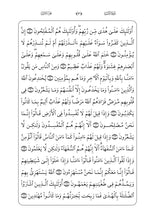 أُولَٰئِكَ عَلَىٰ هُدًى مِّن رَّبِّهِمْ وَأُولَٰئِكَ هُمُ الْمُفْلِحُونَ إِنَّ
الَّذِينَ كَفَرُوا سَوَاءٌ عَلَيْهِمْ ءَأَنذَرْتَهُمْ أَمْ لَمْ تُنذِرْهُمْ لَا
يُؤْمِنُونَ خَتَمَ اللَّهُ عَلَىٰ قُلُوبِهِمْ وَعَلَىٰ سَمْعِهِمْ وَعَلَىٰ
أَبْصَارِهِمْ غِشَاوَةٌ وَلَهُمْ عَذَابٌ عَظِيمٌ وَمِنَ النَّاسِ مَن يَقُولُ
ءَامَنَّا بِاللَّهِ وَبِالْيَوْمِ الْآخِرِ وَمَا هُم بِمُؤْمِنِينَ يُخَادِعُونَ اللَّهَ
وَالَّذِينَ ءَامَنُوا وَمَا يَخْدَعُونَ إِلَّا أَنفُسَهُمْ وَمَا يَشْعُرُونَ فِي
قُلُوبِهِم مَّرَضٌ فَزَادَهُمُ اللَّهُ مَرَضًا وَلَهُمْ عَذَابٌ أَلِيمٌ بِمَا كَانُوا
يَكْذِبُونَ وَإِذَا قِيلَ لَهُمْ لَا تُفْسِدُوا فِي الْأَرْضِ قَالُوا إِنَّمَا
نَحْنُ مُصْلِحُونَ أَلَا إِنَّهُمْ هُمُ الْمُفْسِدُونَ وَلَٰكِن لَّا يَشْعُرُونَ
وَإِذَا قِيلَ لَهُمْ ءَامِنُوا كَمَا ءَامَنَ النَّاسُ قَالُوا أَنُؤْمِنُ
كَمَا ءَامَنَ السُّفَهَاءُ أَلَا إِنَّهُمْ هُمُ السُّفَهَاءُ وَلَٰكِن لَّا يَعْلَمُونَ
وَإِذَا لَقُوا الَّذِينَ ءَامَنُوا قَالُوا ءَامَنَّا وَإِذَا خَلَوْا إِلَىٰ شَيَاطِينِهِمْ
قَالُوا إِنَّا مَعَكُمْ إِنَّمَا نَحْنُ مُسْتَهْزِءُونَ اللَّهُ يَسْتَهْزِئُ بِهِمْ
وَيَمُدُّهُمْ فِي طُغْيَانِهِمْ يَعْمَهُونَ أُولَٰئِكَ الَّذِينَ اشْتَرَوُا
الضَّلَالَةَ بِالْهُدَىٰ فَمَا رَبِحَت تِّجَارَتُهُمْ وَمَا كَانُوا مُهْتَدِينَ